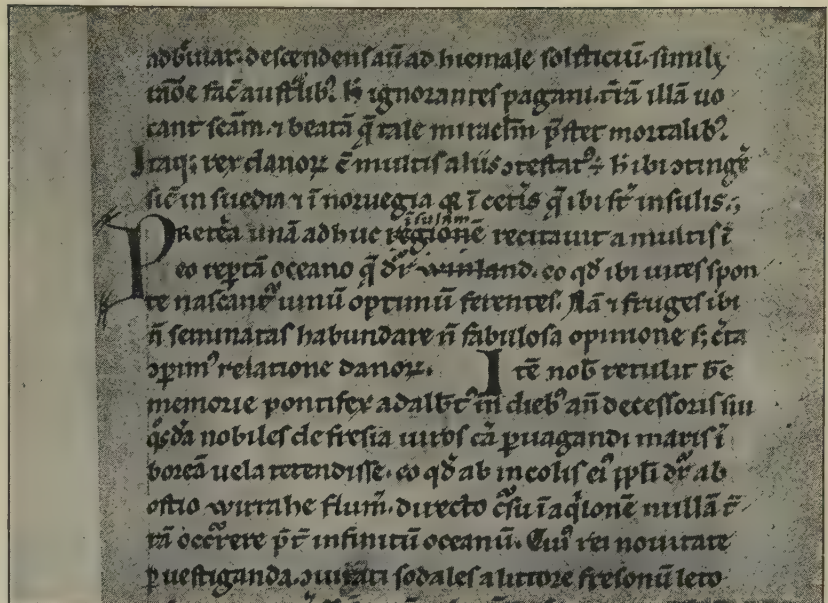 adbᷓuiat᷑. descendens aū ad hiemale solsticiū. simili
tāōe fac̄ austͣlibꝰ. h̄ ignorantes pagani. tᷓrā illā uo
cant sc̄am. ⁊ beatā q̄ tale miracl̄m p̄stet mortalibꝰ.
Itaqꝫ rex danoꝝ ē multis aliis ↄtestatꝰ ÷ h̄ ibi ↄtingē
sic̄ in suedia ⁊ ī noruegia ⁊ ī cetīs q̄ ibi st̄ insulis.,
Pretēa unā adhuc regionē recitauit a multis ī
īsulam
eo reptā oceano q̄ dr̄ winland. eo qd̄ ibi uites spon
te nascant᷑ uinū optimū ferentes. Nā ⁊ fruges ibi
n̄ seminatas habundare n̄ fabulosa opinione sꝫ c̄ta
ↄꝑimꝰ relatione danoꝝ. Itē nob̄ retulit b̄e
memorie pontifex adalb̄tꝰ in diebꝰ an̄decessoris sui
q̊sdā nobiles de fresia uiros cā ꝑuagandi maris ī
boreā uela tetendisse. eo qd̄ ab incolis eiꝰ ppl̄i dr̄ ab
ostio wirrahe flum̄. directo c̄su ī aq̇lonē nullā t̄
rā occ̄rere p̄t̄ infinitū oceanū. Cuiꝰ rei nouitate
ꝑuestiganda. ↄiurati sodales a littore fresonū leto